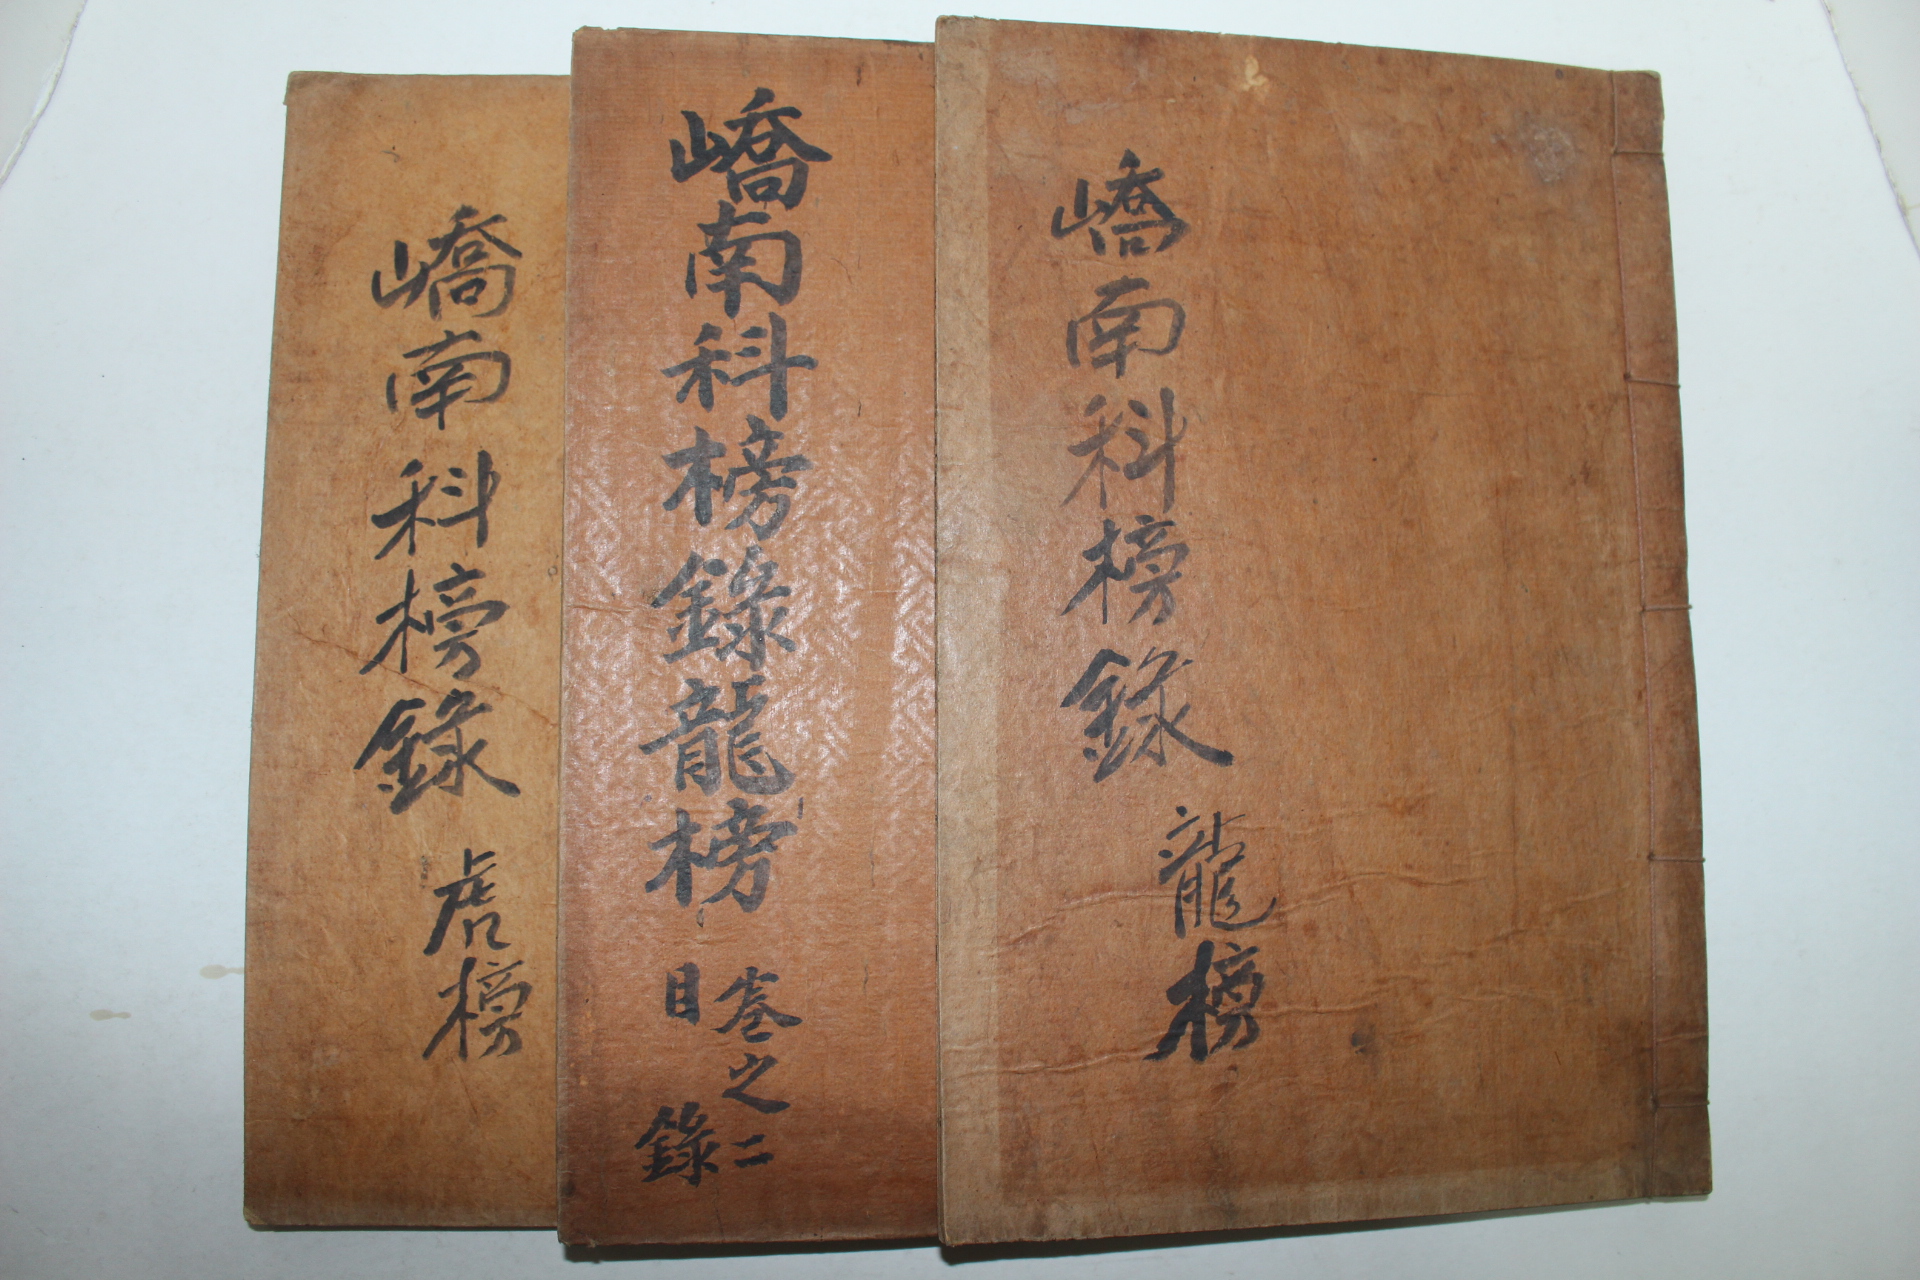 嶠南科榜錄
龍榜
嶠南科榜錄龍榜
卷之二
目錄
嶠南科榜錄
虎榜